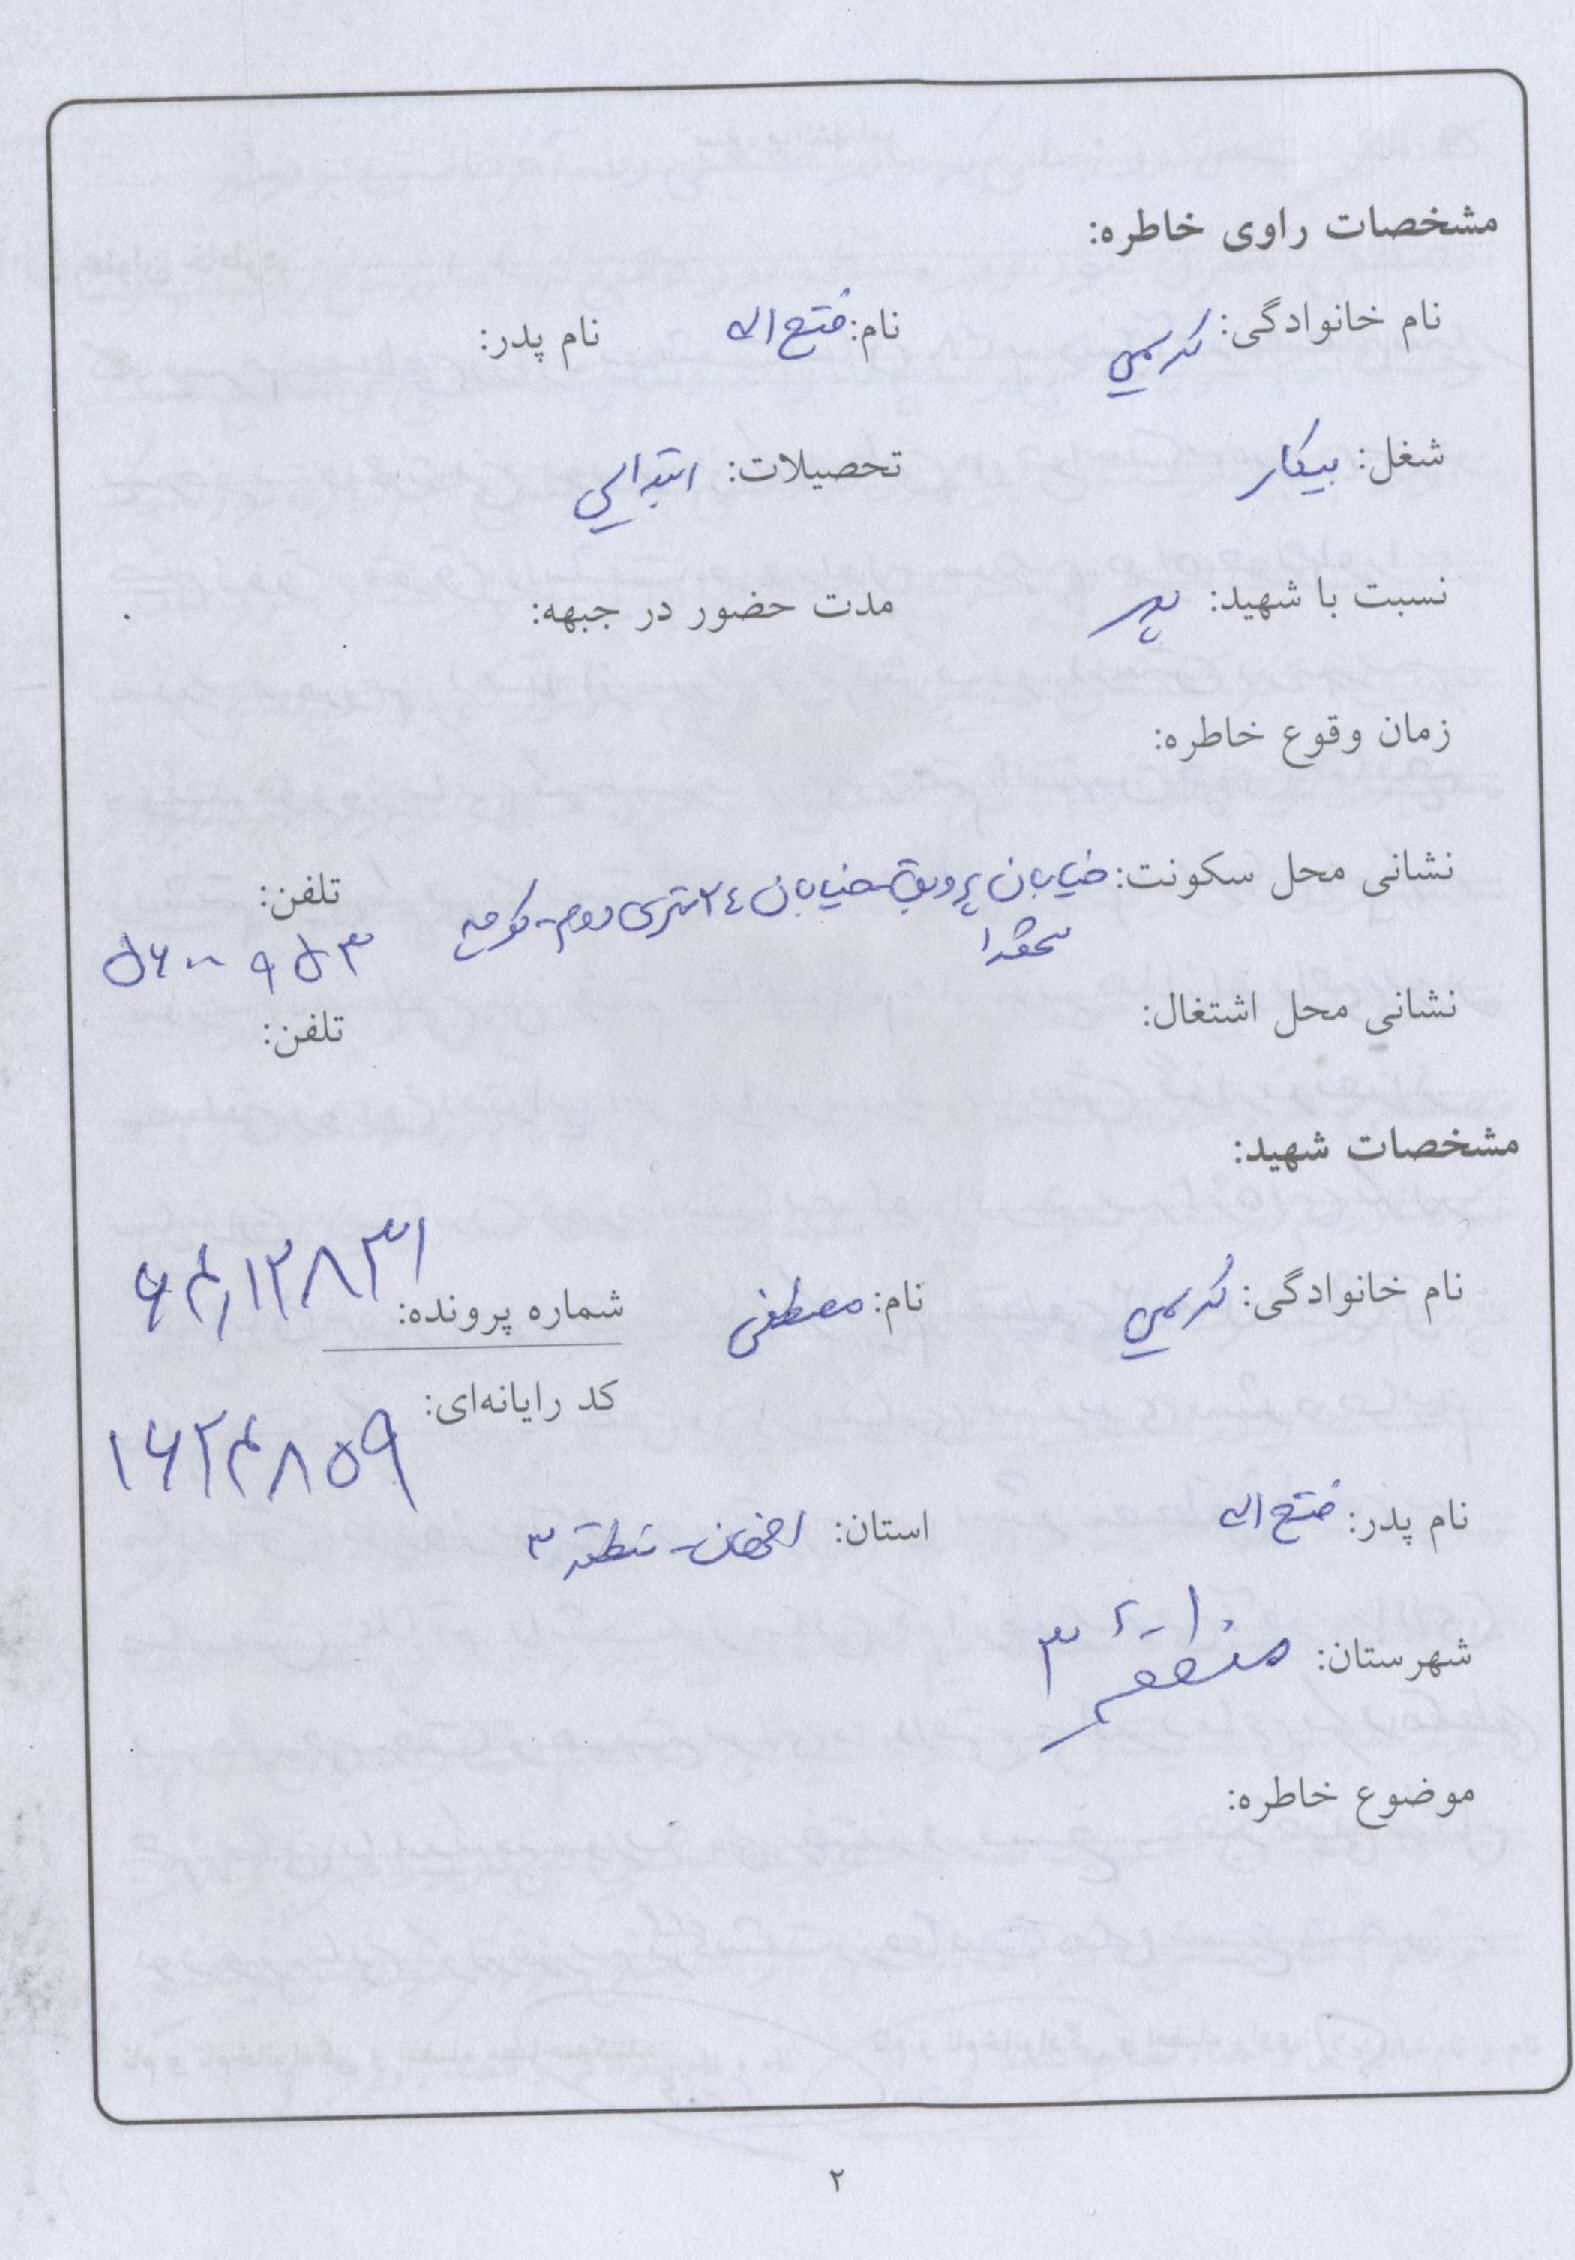 مشخصات راوی خاطره:
نام خانوادگی: کریمی نام: فتح اله نام پدر:
شغل: بیکار تحصیلات: ابتدایی
نسبت با شهید: پدر مدت حضور در جبهه:
زمان وقوع خاطره:
نشانی محل سکونت: خیابان پروین - خیابان ۲۴ متری دوم - کوچه تلفن:
۵۶۰۰۹۵۳
نشانی محل اشتغال: تلفن:
مشخصات شهید:
نام خانوادگی: کریمی نام: مصطفی شماره پرونده: ۶۴۱۲۸۳۱
کد رایانه‌ای: ۱۶۲۴۸۵۹
نام پدر: فتح اله استان: اصفهان - منطقه ۳
شهرستان: منطقه ۳
موضوع خاطره:
۲